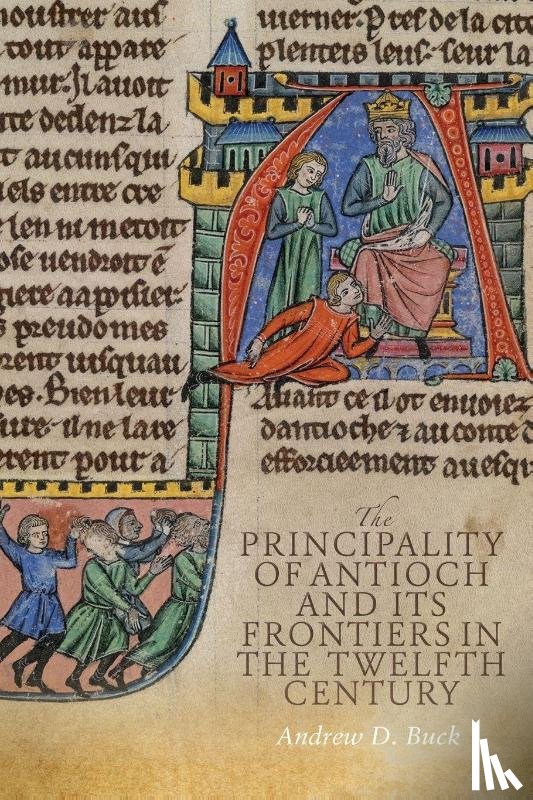 moustrer aus
tout appare
mur. Il auoit
tte dedenz la
t aucuns qui
iels entre cre
e len ni metoit
ose uendroit ē
giere aapoisier
s preudomes
rent iusquau
es. Bien leur
ure. il ne lare
erent pour a
uerner. Pres de la cite
plenteis leus. seur la
A
Auant ce il ot enuoiez
dantioche ⁊ au conte d
efforcieement auesqu
The
PRINCIPALITY
OF ANTIOCH
AND ITS
FRONTIERS IN
THE TWELFTH
CENTURY
Andrew D. Buck